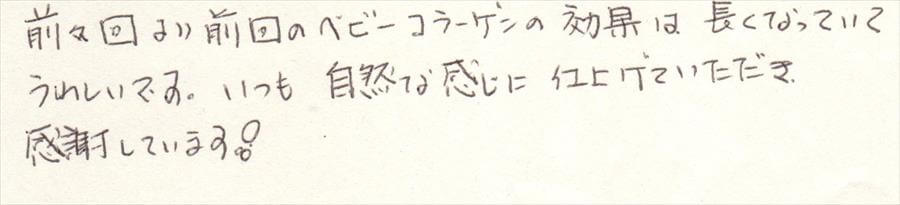 前々回より前回のベビーコラーゲンの効果は長くなっていて
うれしいです。いつも自然な感じに仕上げていただき
感謝しています!